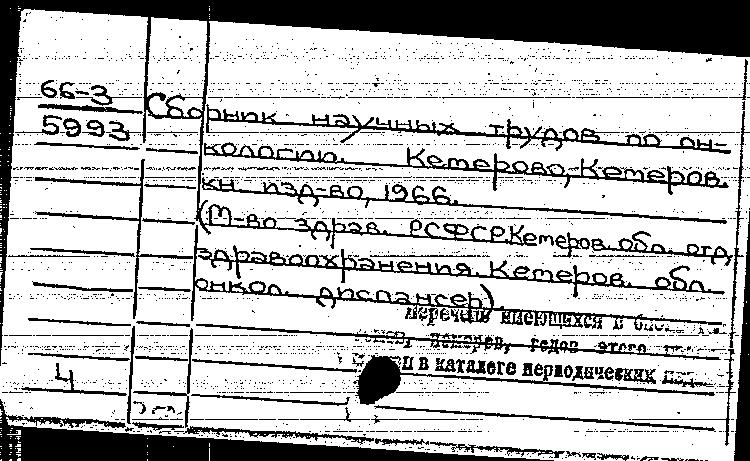 66-3
5993
Сборник научных трудов по он-
кологии. Кемерово, Кемеров.
кн. изд-во, 1966.
(М-во здрав. РСФСР. Кемеров. обл. отд.
здравоохранения. Кемеров. обл.
онкол. диспансер)
перечень имеющихся в
номеров, годов этого
в каталоге периодических
4